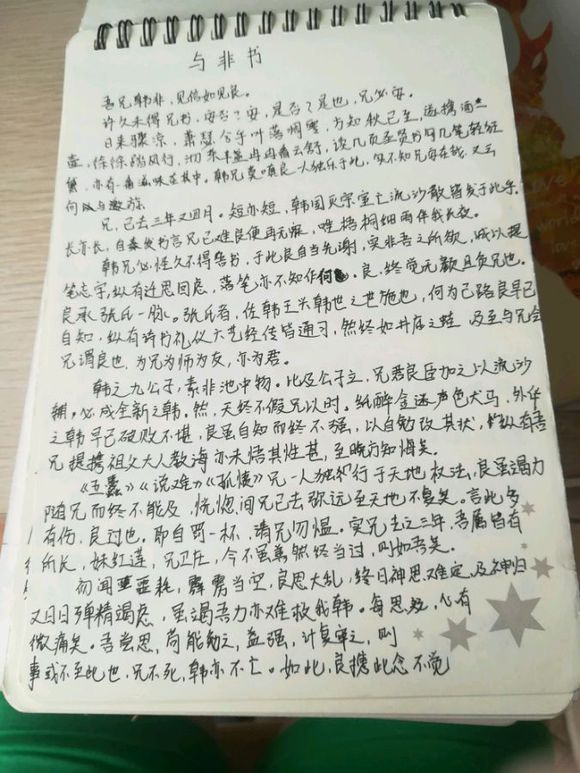 与非书
吾兄韩非，见信如见良。
许久未得兄书，安否？安，是否？是也，兄必安。
日来骤凉，萧瑟 叶落凋零，方知秋已至，遂携酒一
壶，徐徐踏风行，沏茶半盏冉冉看云舒，读几页圣贤书网几笔轻狂
黛，亦有一番滋味在其中。韩兄莫嗔良一人独乐于此，只不知兄安在哉，又云
何以与遨游
兄，已去三年又四月。短亦短，韩国灭宗室亡流沙散皆发于此乎。
长亦长，自 书言兄已难良便再无眠，唯梧桐细雨伴我长夜。
韩兄必怪久不得余书，于此良自当先谢，实非吾之所欲，诚以提
笔忘字，纵有迁思回虑，落笔亦不知作何。良，终觉无颜且负兄也。
良承张氏一脉。张氏者，佐韩王兴韩世之世施也，何为己路良早已
自知，纵有诗书礼仪六艺经传皆通习，然终如井底之蛙，及至与兄会
兄谓良也，为兄为师为友，亦为君。
韩之九公子，素非池中物。比及公子立，兄君良臣加之以流沙
辅，必成全新之韩。然，天终不假兄以时。纸醉金迷声色犬马，外华
之韩早已破败不堪，良虽自知而终不强，以自勉改其状，纵有吾
兄提携祖父大人教诲亦未悟其性甚，至晚方知悔矣。
《五蠹》《说难》《孤愤》兄一人独行于天地权法，良虽竭力
随兄而终不能及，恍惚间兄已去弥远至天地不复矣。言此多
有伤，良过也。即自罚一杯，请兄勿愠。实兄去之三年，吾属皆有
所长，妹红莲，兄卫庄，今不虽 然终当过，则如吾矣。
初闻噩耗，霹雳当空，良思大乱，终日神思难定，及神归
又日日殚精竭虑，虽竭吾力亦难救我韩。每思 ，心有
微痛矣。吾尝思，苟能勉之，益强，计复审之，则
事或不至此也，兄不死，韩亦不亡。如此，良携此念不觉